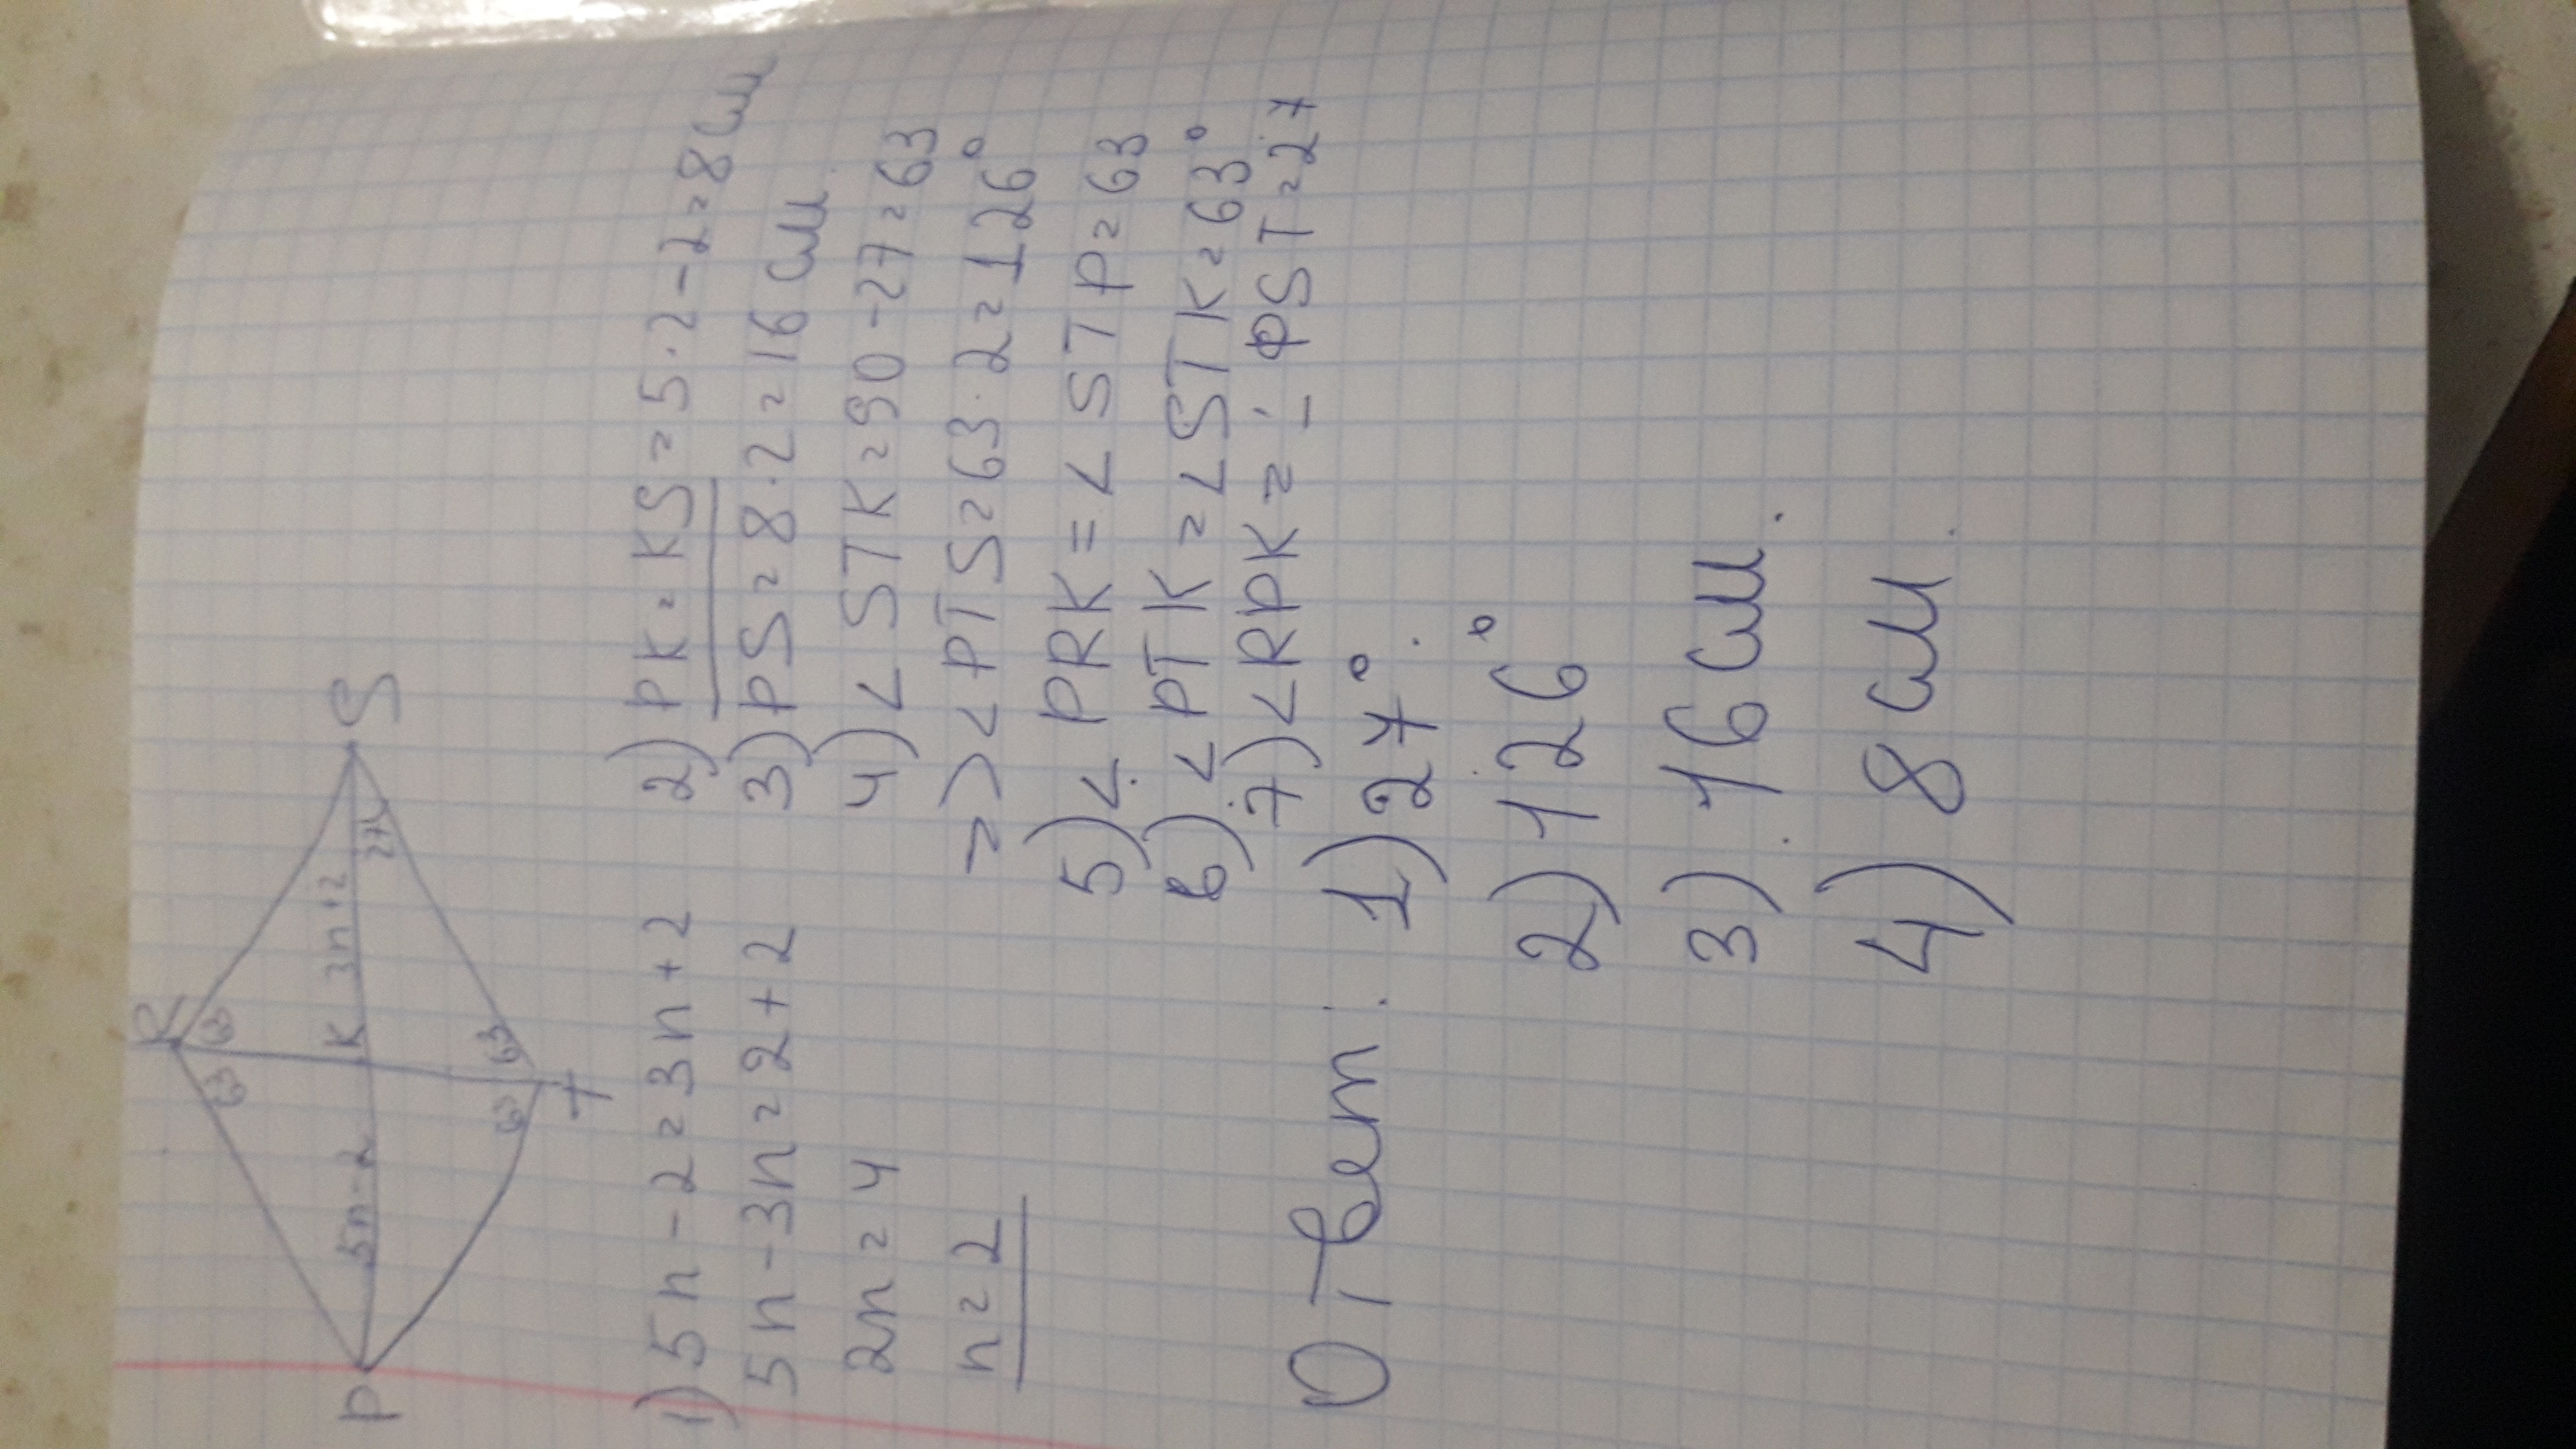 R
63 63
P 5n-2 K 3n+2 27 S
63 63
T
1) 5n-2=3n+2
5n-3n=2+2
2n=4
n=2
2) PK=KS=5·2-2=8см
3) PS=8·2=16см
4) ∠STK=90-27=63
=> ∠PTS=63·2=126°
5) ∠PRK=∠STP=63
6) ∠PTK=∠STK=63°
7) ∠RPK= PST=27
Ответ: 1) 27°.
2) 126°
3) 16см.
4) 8см.